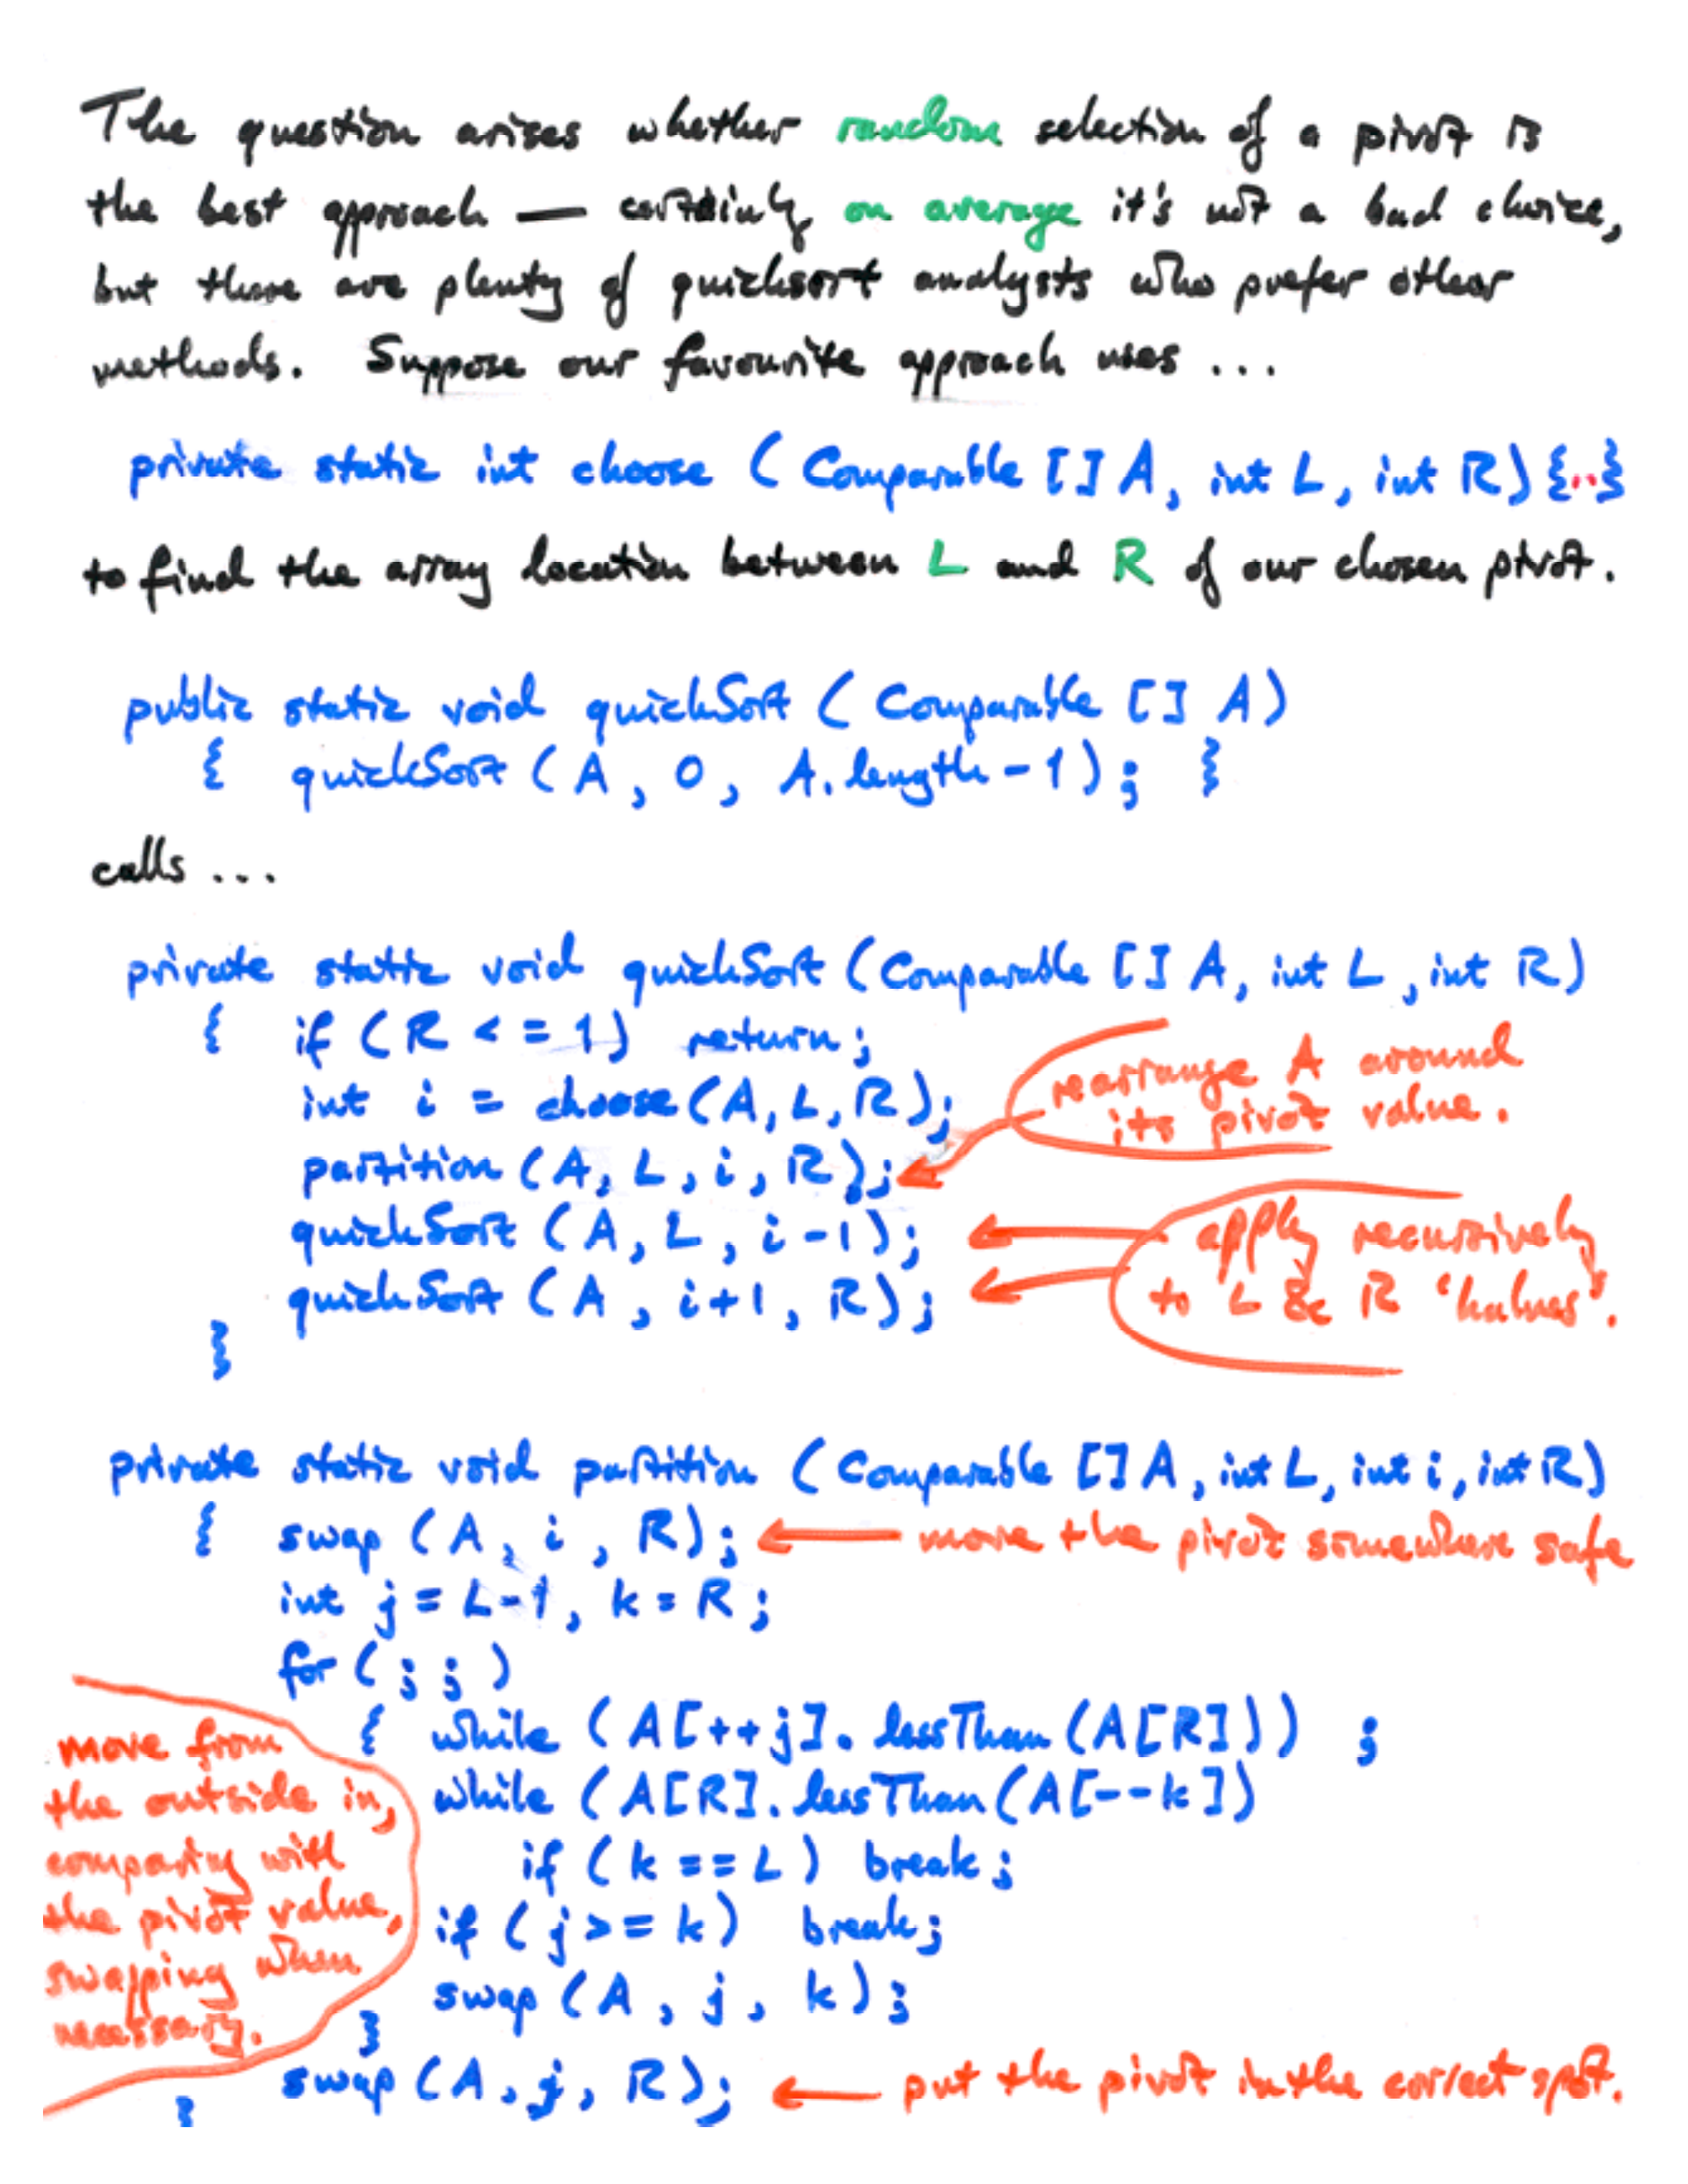 The question arises whether random selection of a pivot is
the best approach — certainly on average it's not a bad choice,
but there are plenty of quicksort analysts who prefer other
methods. Suppose our favourite approach uses ...
private static int choose ( Comparable [] A, int L, int R) {..}
to find the array location between L and R of our chosen pivot.
public static void quickSort ( Comparable [] A )
{ quickSort ( A , 0 , A. length - 1 ) ; }
calls ...
private static void quickSort ( Comparable [] A, int L , int R )
{ if ( R < = 1 ) return ;
int i = choose ( A, L, R ) ;
rearrange A around
its pivot value.
partition ( A, L , i , R ) ;
quickSort ( A , L , i - 1 ) ;
quickSort ( A , i+1 , R ) ;
apply recursively
to L & R 'halves'.
}
private static void partition ( Comparable [] A , int L, int i , int R )
{ swap ( A , i , R ) ; move the pivot somewhere safe
int j = L-1 , k = R ;
for ( ; ; )
{ while ( A [ ++ j ] . lessThan ( A [ R ] ) ) ;
while ( A [ R ] . lessThan ( A [ -- k ] )
if ( k == L ) break ;
if ( j >= k ) break ;
swap ( A , j , k ) ;
}
move from
the outside in,
comparing with
the pivot value,
swapping when
necessary.
swap ( A , j , R ) ; put the pivot in the correct spot.
}